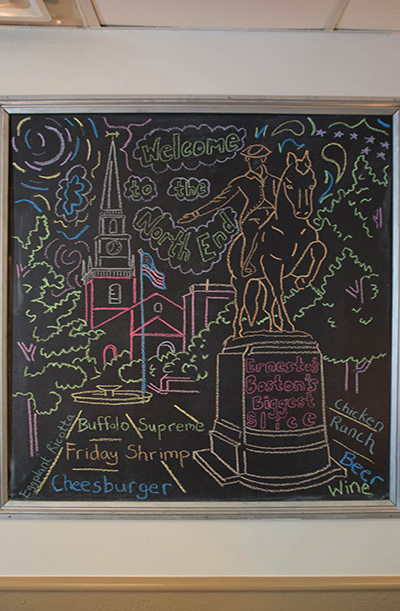 Welcome
to the
North End
Ernesto's
Boston's
Biggest
Slice
Eggplant Ricotta
Buffalo Supreme
Friday Shrimp
Cheesburger
Chicken
Ranch
Beer
Wine